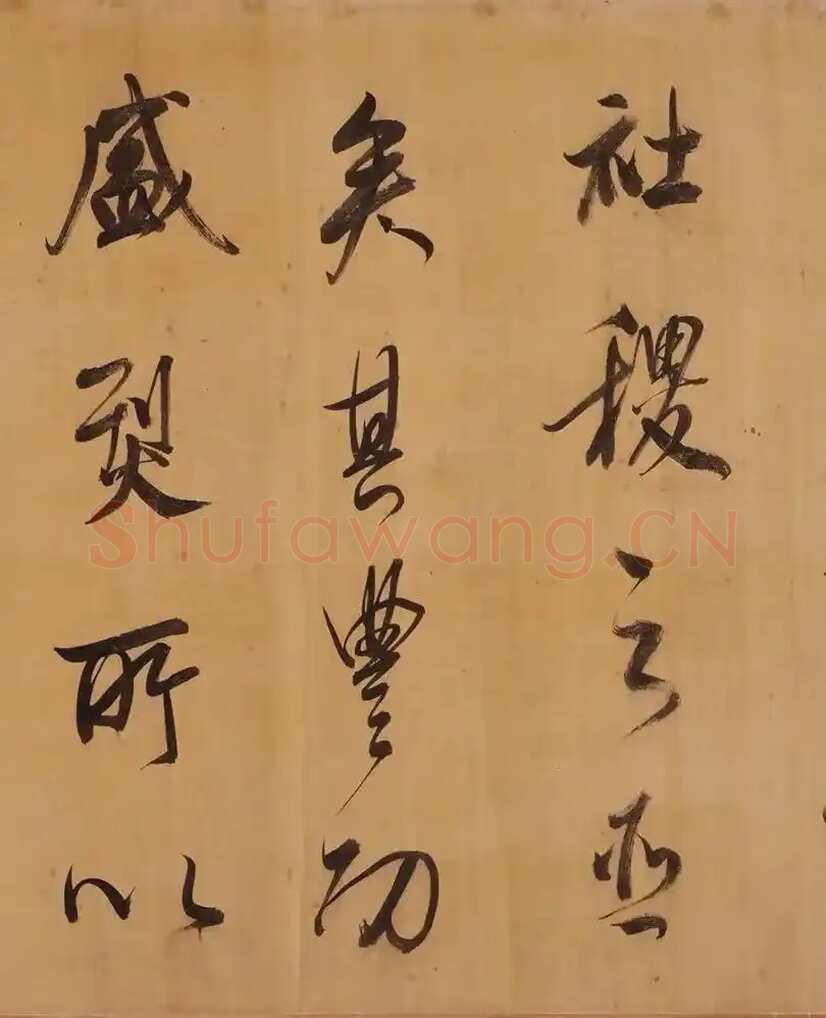 社稷之臣
矣其豐功
盛烈所以
Shufawang.CN